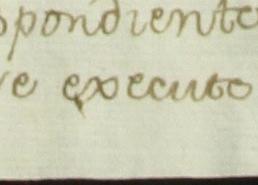 spondiente
ve executo